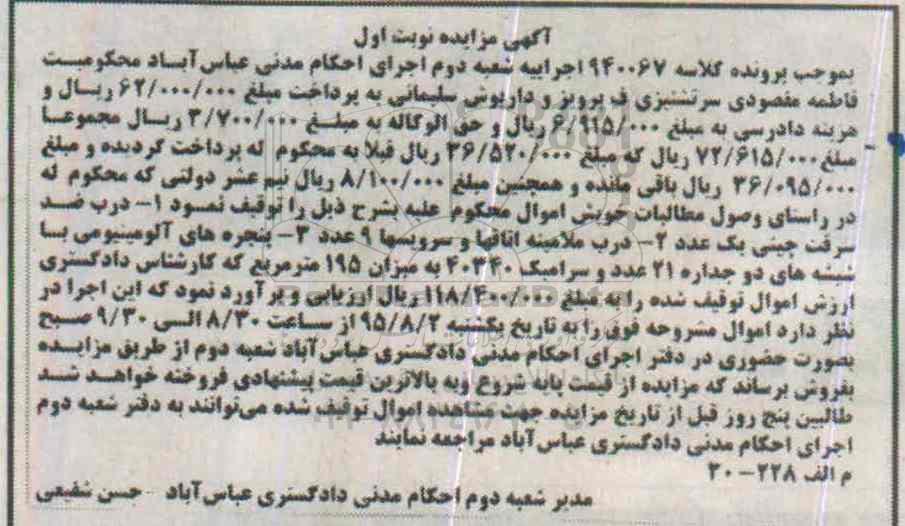 آگهی مزایده نوبت اول
بموجب پرونده کلاسه ۹۴۰۰۶۷ اجراییه شعبه دوم اجرای احکام مدنی عباس‌آباد محکومیت
فاطمه مقصودی سرتشنیزی ف پرویز و داریوش سلیمانی به پرداخت مبلغ ۶۲/۰۰۰/۰۰۰ ریال و
هزینه دادرسی به مبلغ ۶/۹۱۵/۰۰۰ ریال و حق الوکاله به مبلغ ۳/۷۰۰/۰۰۰ ریال مجموعا
مبلغ ۷۲/۶۱۵/۰۰۰ ریال که مبلغ ۳۶/۵۲۰/۰۰۰ ریال قبلا به محکوم له پرداخت گردیده و مبلغ
۳۶/۰۹۵/۰۰۰ ریال باقی مانده و همچنین مبلغ ۸/۱۰۰/۰۰۰ ریال نیم عشر دولتی که محکوم له
در راستای وصول مطالبات خویش اموال محکوم علیه بشرح ذیل را توقیف نمود ۱- درب ضد
سرقت چینی یک عدد ۲- درب ملامینه اتاقها و سرویسها ۹ عدد ۳- پنجره های آلومینیومی با
شیشه های دو جداره ۲۱ عدد و سرامیک ۴۰*۴۰ به میزان ۱۹۵ مترمربع که کارشناس دادگستری
ارزش اموال توقیف شده را به مبلغ ۱۱۸/۴۰۰/۰۰۰ ریال ارزیابی و برآورد نمود که این اجرا در
نظر دارد اموال مشروحه فوق را به تاریخ یکشنبه ۹۵/۸/۲ از ساعت ۸/۳۰ الی ۹/۳۰ صبح
بصورت حضوری در دفتر اجرای احکام مدنی دادگستری عباس‌آباد شعبه دوم از طریق مزایده
بفروش برساند که مزایده از قیمت پایه شروع وبه بالاترین قیمت پیشنهادی فروخته خواهد شد
طالبین پنج روز قبل از تاریخ مزایده جهت مشاهده اموال توقیف شده می‌توانند به دفتر شعبه دوم
اجرای احکام مدنی دادگستری عباس‌آباد مراجعه نمایند
م الف ۲۲۸-۳۰
مدیر شعبه دوم احکام مدنی دادگستری عباس‌آباد - حسن شفیعی